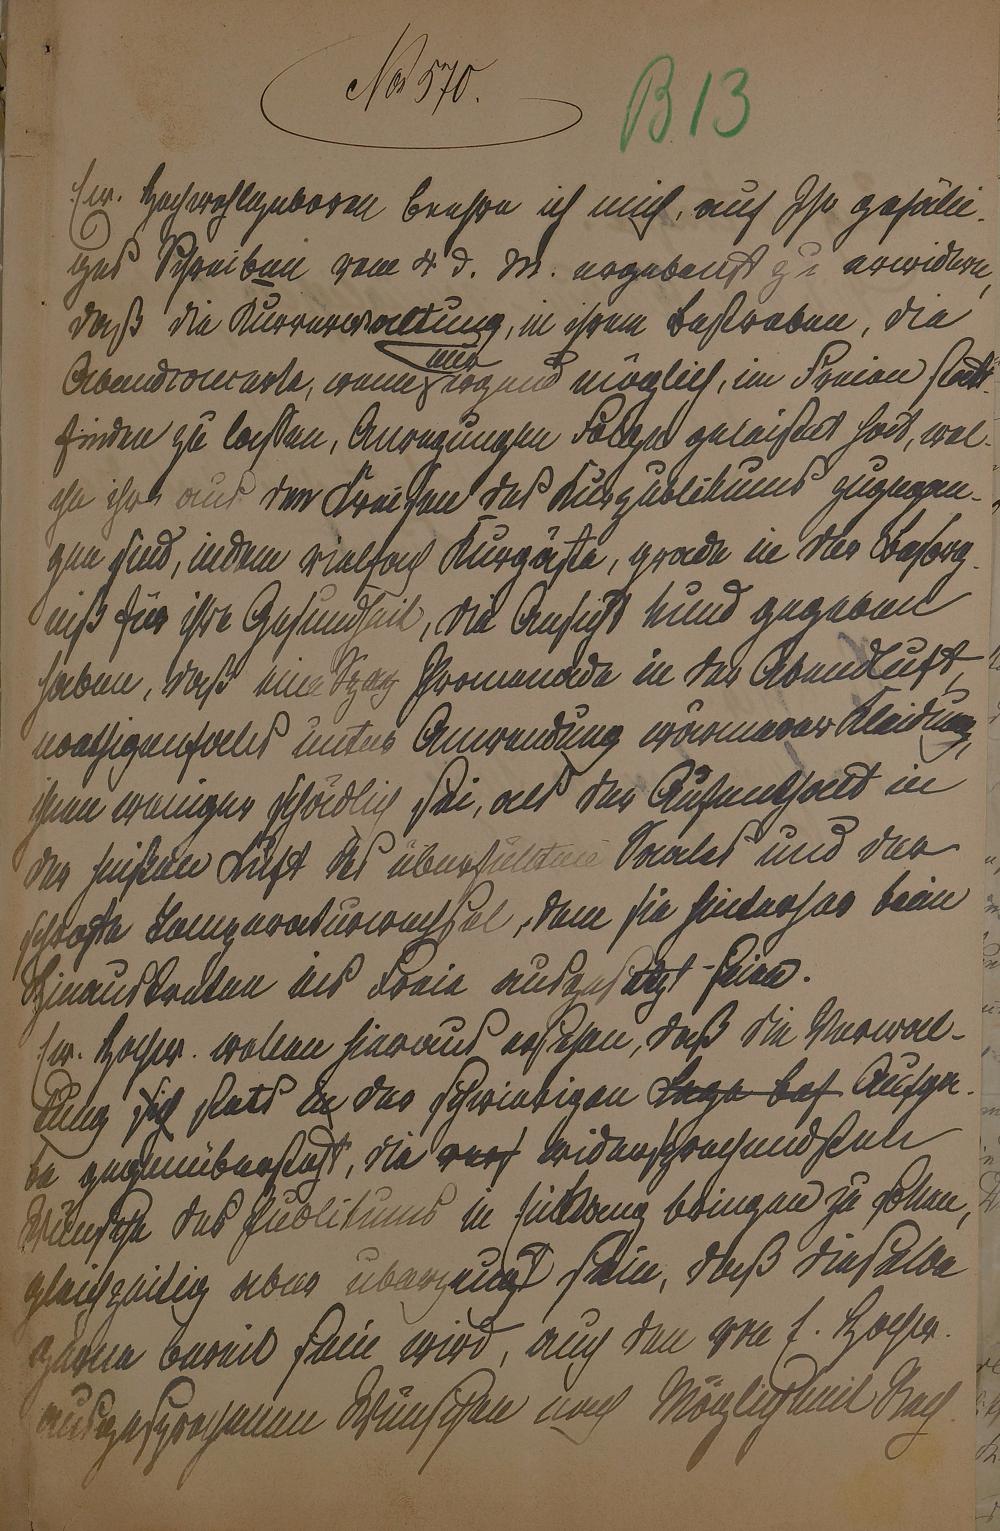 No 570.
B 13
Ew. Hochwohlgeboren beehre ich mich, auf Ihr gefälli-
ges Schreiben vom 4 d. M. ergebenst zu erwidern,
daß die Kurverwaltung, in ihrem Bestreben, die
Abendconcerte, wenn nur irgend möglich, im Freien statt-
finden zu lassen, Anregungen Folge geleistet hat, wel-
che ihr aus den Kreisen des Kurpublikums zugegan-
gen sind, indem vielfach Kurgäste, grade in der Besorg-
niß für ihre Gesundheit, die Ansicht kund gegeben
haben, daß eine Promenade in der Abendluft,
nöthigenfalls unter Anwendung wärmerer Kleidung,
ihnen weniger schädlich sei, als der Aufenthalt in
der heißen Luft des überfüllten Saales und der
schroffe Temperaturwechsel, dem sie hinterher beim
Hinaustreten ins Freie ausgesetzt seien.
Ew. Hochw. wollen hieraus ersehen, daß die Verwal-
tung sich stets der schwierigen Lage bef Aufga-
be gegenübersieht, die widersprechendsten
Wünsche des Publikums in Einklang bringen zu sollen,
gleichzeitig aber überzeugt sein, daß dieselbe
gerne bereit sein wird, auch den von E. Hochw.
ausgesprochenen Wünschen nach Möglichkeit Rech